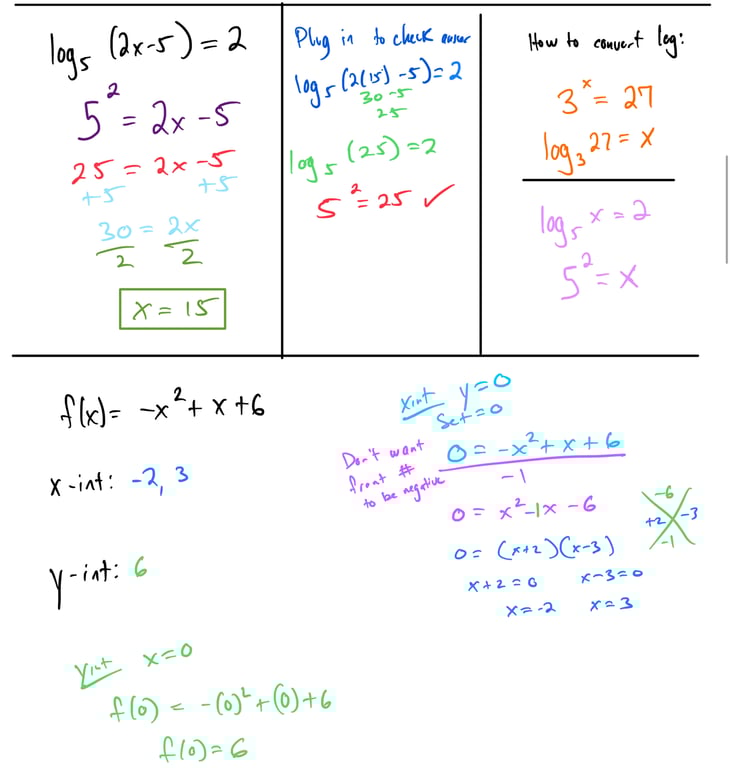 log₅ (2x-5) = 2
5² = 2x - 5
25 = 2x - 5
+5 +5
30 = 2x
2 2
x = 15
Plug in to check answer
log₅ (2(15) - 5) = 2
30 - 5
25
log₅ (25) = 2
5² = 25 ✓
How to convert log:
3ˣ = 27
log₃ 27 = x
log₅ x = 2
5² = x
f(x) = -x² + x + 6
x-int: -2, 3
y-int: 6
yint x=0
f(0) = -(0)² + (0) + 6
f(0) = 6
xint y=0
Set = 0
Don't want
front #
to be negative
0 = -x² + x + 6
-1
0 = x² - 1x - 6
0 = (x+2)(x-3)
x+2=0 x-3=0
x=-2 x=3
-6
+2 -3
-1